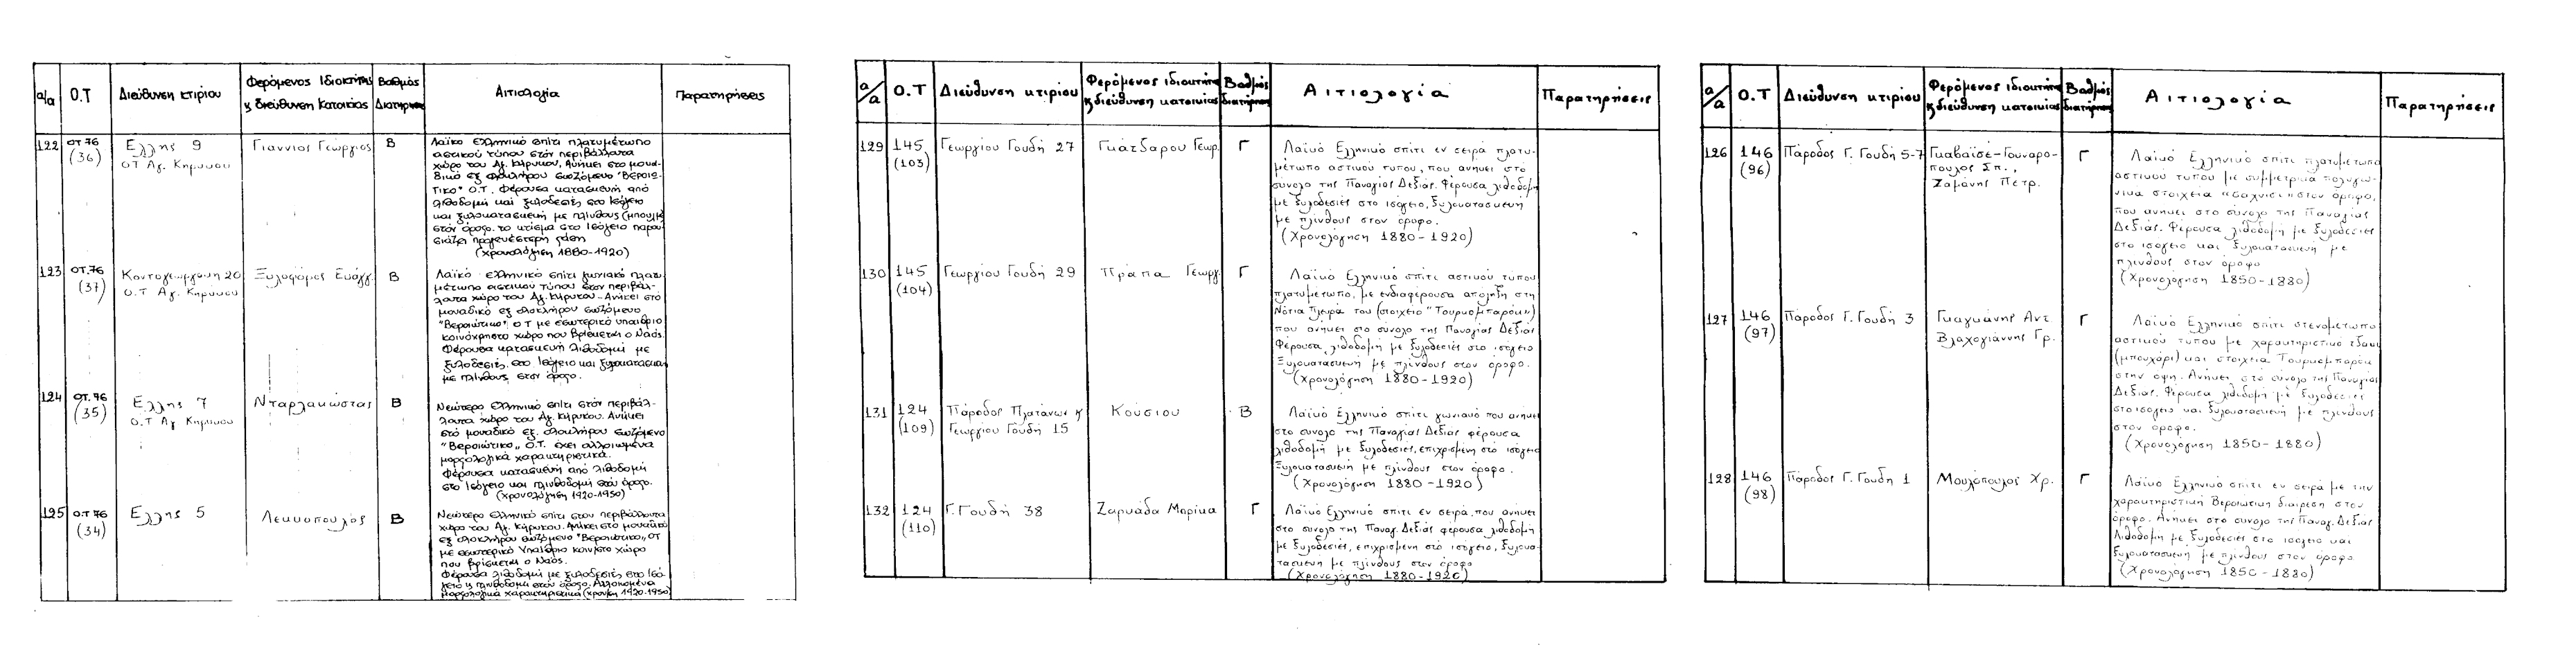 α/α Ο.Τ Διεύθυνση κτιρίου Φερόμενος Ιδιοκτήτης Βαθμός Αιτιολογία Παρατηρήσεις
ϗ διεύθυνση κατοικίας Διατήρησης
122 ΟΤ 76 Έλλης 9 Γιαννιος Γεώργιος Β Λαϊκο Ελληνικό σπίτι πλατυμέτωπο
(36) ΟΤ Αγ. Κηρύκου αστικού τύπου στόν περιβάλλοντα
χώρο του Αγ. Κήρυκου. Ανήκει στο μονα-
δικό εξ ολοκλήρου σωζόμενο "Βεροιώ-
τικο" Ο.Τ. Φέρουσα κατασκευή από
λιθοδομή και ξυλοδεσιές στο Ισόγειο
και ξυλοκατασκευή με πλίνθους
στόν όροφο. το κτίσμα στο Ισόγειο παρου
σιάζει προγενέστερη φάση
(χρονολόγηση 1880-1920)
123 ΟΤ.76 Κοντογεωργάκη 20 Ξυλοφόρος Ευάγγ. Β Λαϊκό Ελληνικό σπίτι γωνιακό πλατυ-
(37) Ο.Τ Αγ. Κηρύκου μέτωπο αστικού τύπου στον περιβάλ-
λοντα χώρο του Αγ. Κήρυκου - Ανήκει στό
μοναδικό εξ ολοκλήρου σωζόμενο
"Βεροιώτικο" Ο Τ με εσωτερικό υπαίθριο
κοινόχρηστο χώρο που βρίσκεται ο Ναός.
Φέρουσα κατασκευή λιθοδομή με
ξυλοδεσιές στο Ισόγειο και ξυλοκατασκευή
με πλίνθους στον όροφο.
124 ΟΤ.76 Έλλης 7 Νταρλακώστας Β Νεώτερο Ελληνικό σπίτι στόν περιβάλ-
(35) Ο.Τ Αγ Κηρύκου λοντα χώρο του Αγ. Κήρυκου. Ανήκει
στό μοναδικό εξ. ολοκλήρου σωζόμενο
"Βεροιώτικο,, Ο.Τ. έχει αλλοιωμένα
μορφολογικά χαρακτηριστικά.
Φέρουσα κατασκευή από λιθοδομή
στο Ισόγειο και πλινθοδομή στόν όροφο.
(χρονολόγηση 1920-1950)
125 Ο.Τ 76 Έλλης 5 Λεκκοπουλος Β Νεώτερο Ελληνικό σπίτι στον περιβάλλοντα
(34) χώρο του Αγ. Κήρυκου. Ανήκει στό μοναδικό
εξ ολοκλήρου σωζόμενο "Βεροιώτικο,, ΟΤ
με εσωτερικό Υπαίθριο κοιν/στο χώρο
που βρίσκεται ο Ναός.
Φέρουσα λιθοδομή με ξυλοδεσιές στο Ισό-
γειο ϗ πλινθοδομή στόν όροφο. Αλλοιωμένα
μορφολογικά χαρακτηριστικά (χρον/ση 1920-1950
α/α Ο.Τ Διεύθυνση κτιρίου Φερόμενος ιδιοκτήτης Βαθμός Αιτιολογία Παρατηρήσεις
ϗ διεύθυνση κατοικίας διατήρησης
129 145 Γεωργίου Γουδή 27 Γκατζαρου Γεωρ. Γ Λαϊκό Ελληνικό σπίτι εν σειρά πλατυ-
(103) μέτωπο αστικού τυπου, που ανηκει στο
συνολο της Παναγίας Δεξιάς. Φέρουσα λιθοδομη
με ξυλοδεσιές στο ισόγειο, ξυλοκατασκευή
με πλίνθους στον όροφο.
(Χρονολόγηση 1880-1920)
130 145 Γεωργίου Γουδή 29 Πράπα Γεωργ. Γ Λαϊκό Ελληνικό σπίτι αστικού τυπου
(104) πλατυμέτωπο, με ενδιαφέρουσα απόληξη στη
Νότια πλευρά του (στοιχείο "Τουρκομπαρόκ")
που ανηκει στο σύνολο της Παναγίας Δεξιάς
Φέρουσα, λιθοδομή με ξυλοδεσιές στο ισόγειο
Ξυλοκατασκευή με πλίνθους στον όροφο.
(Χρονολόγηση 1880-1920)
131 124 Πάροδος Πλατάνων ϗ Κούσιου Β Λαϊκό Ελληνικό σπίτι γωνιακό που ανηκει
(109) Γεωργίου Γουδή 15 στο συνολο της Παναγίας Δεξιάς φέρουσα
λιθοδομή με ξυλοδεσιές, επιχρισμένη στο ισόγειο
Ξυλοκατασκευή με πλίνθους στον όροφο.
(Χρονολόγηση 1880-1920)
132 124 Γ. Γουδή 38 Ζαρκάδα Μαρίκα Γ Λαϊκό Ελληνικό σπίτι εν σειρά, που ανηκει
(110) στο συνολο της Παναγ. Δεξιάς φέρουσα λιθοδομή
με ξυλοδεσιές, επιχρισμενη στο ισόγειο, ξυλοκα-
τασκευη με πλίνθους στον όροφο
(Χρονολόγηση 1880-1920)
α/α Ο.Τ Διεύθυνση κτιρίου Φερόμενος ιδιοκτήτης Βαθμός Αιτιολογία Παρατηρήσεις
ϗ διεύθυνση κατοικίας διατήρησης
126 146 Πάροδος Γ. Γουδή 5-7 Γκαβαϊσέ-Γουναρο- Γ Λαϊκό Ελληνικό σπίτι πλατυμέτωπο
(96) πουλος Σπ., αστικού τυπου με συμμετρικά πολυγω-
Ζαμάνης Πετρ. νικα στοιχεία "σαχνισι" στον όροφο,
που ανηκει στο συνολο της Παναγίας
Δεξιάς. Φέρουσα λιθοδομή με ξυλοδεσιές
στο ισόγειο και ξυλοκατασκευή με
πλίνθους στον όροφο
(Χρονολόγηση 1850-1880)
127 146 Πάροδος Γ. Γουδή 3 Γκαγκάνης Αντ. Γ Λαϊκό Ελληνικό σπίτι στενομέτωπο
(97) Βλαχογιάννης Γρ. αστικού τυπου με χαρακτηριστικό τζάκι
(μπουχάρι) και στοιχεία Τουρκομπαρόκ
στην οψη. Ανήκει στο συνολο της Παναγίας
Δεξιάς. Φέρουσα λιθοδομή με ξυλοδεσιές
στο ισόγειο και ξυλοκατασκευή με πλίνθους
στον όροφο.
(Χρονολόγηση 1850-1880)
128 146 Πάροδος Γ. Γουδη 1 Μουλόπουλος Χρ. Γ Λαϊκό Ελληνικό σπίτι εν σειρά με την
(98) χαρακτηριστική Βεροιωτικη διαιρεση στον
όροφο. Ανηκει στο συνολο της Παναγ. Δεξιάς
Λιθοδομή με ξυλοδεσιές στο ισόγειο και
ξυλοκατασκευή με πλίνθους στον όροφο
(Χρονολόγηση 1850-1880)